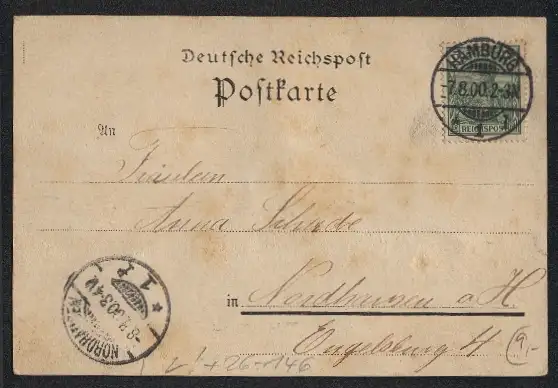 Deutsche Reichspost
Postkarte
HAMBURG
7.8.00.2-3N
1
REICHSPOST
An
Fräulein
Anna Schade
in Nordhausen a. H.
Engelsburg 4
NORDHAUSEN
-8.8.00.3-4V
1
9,-
+26+146